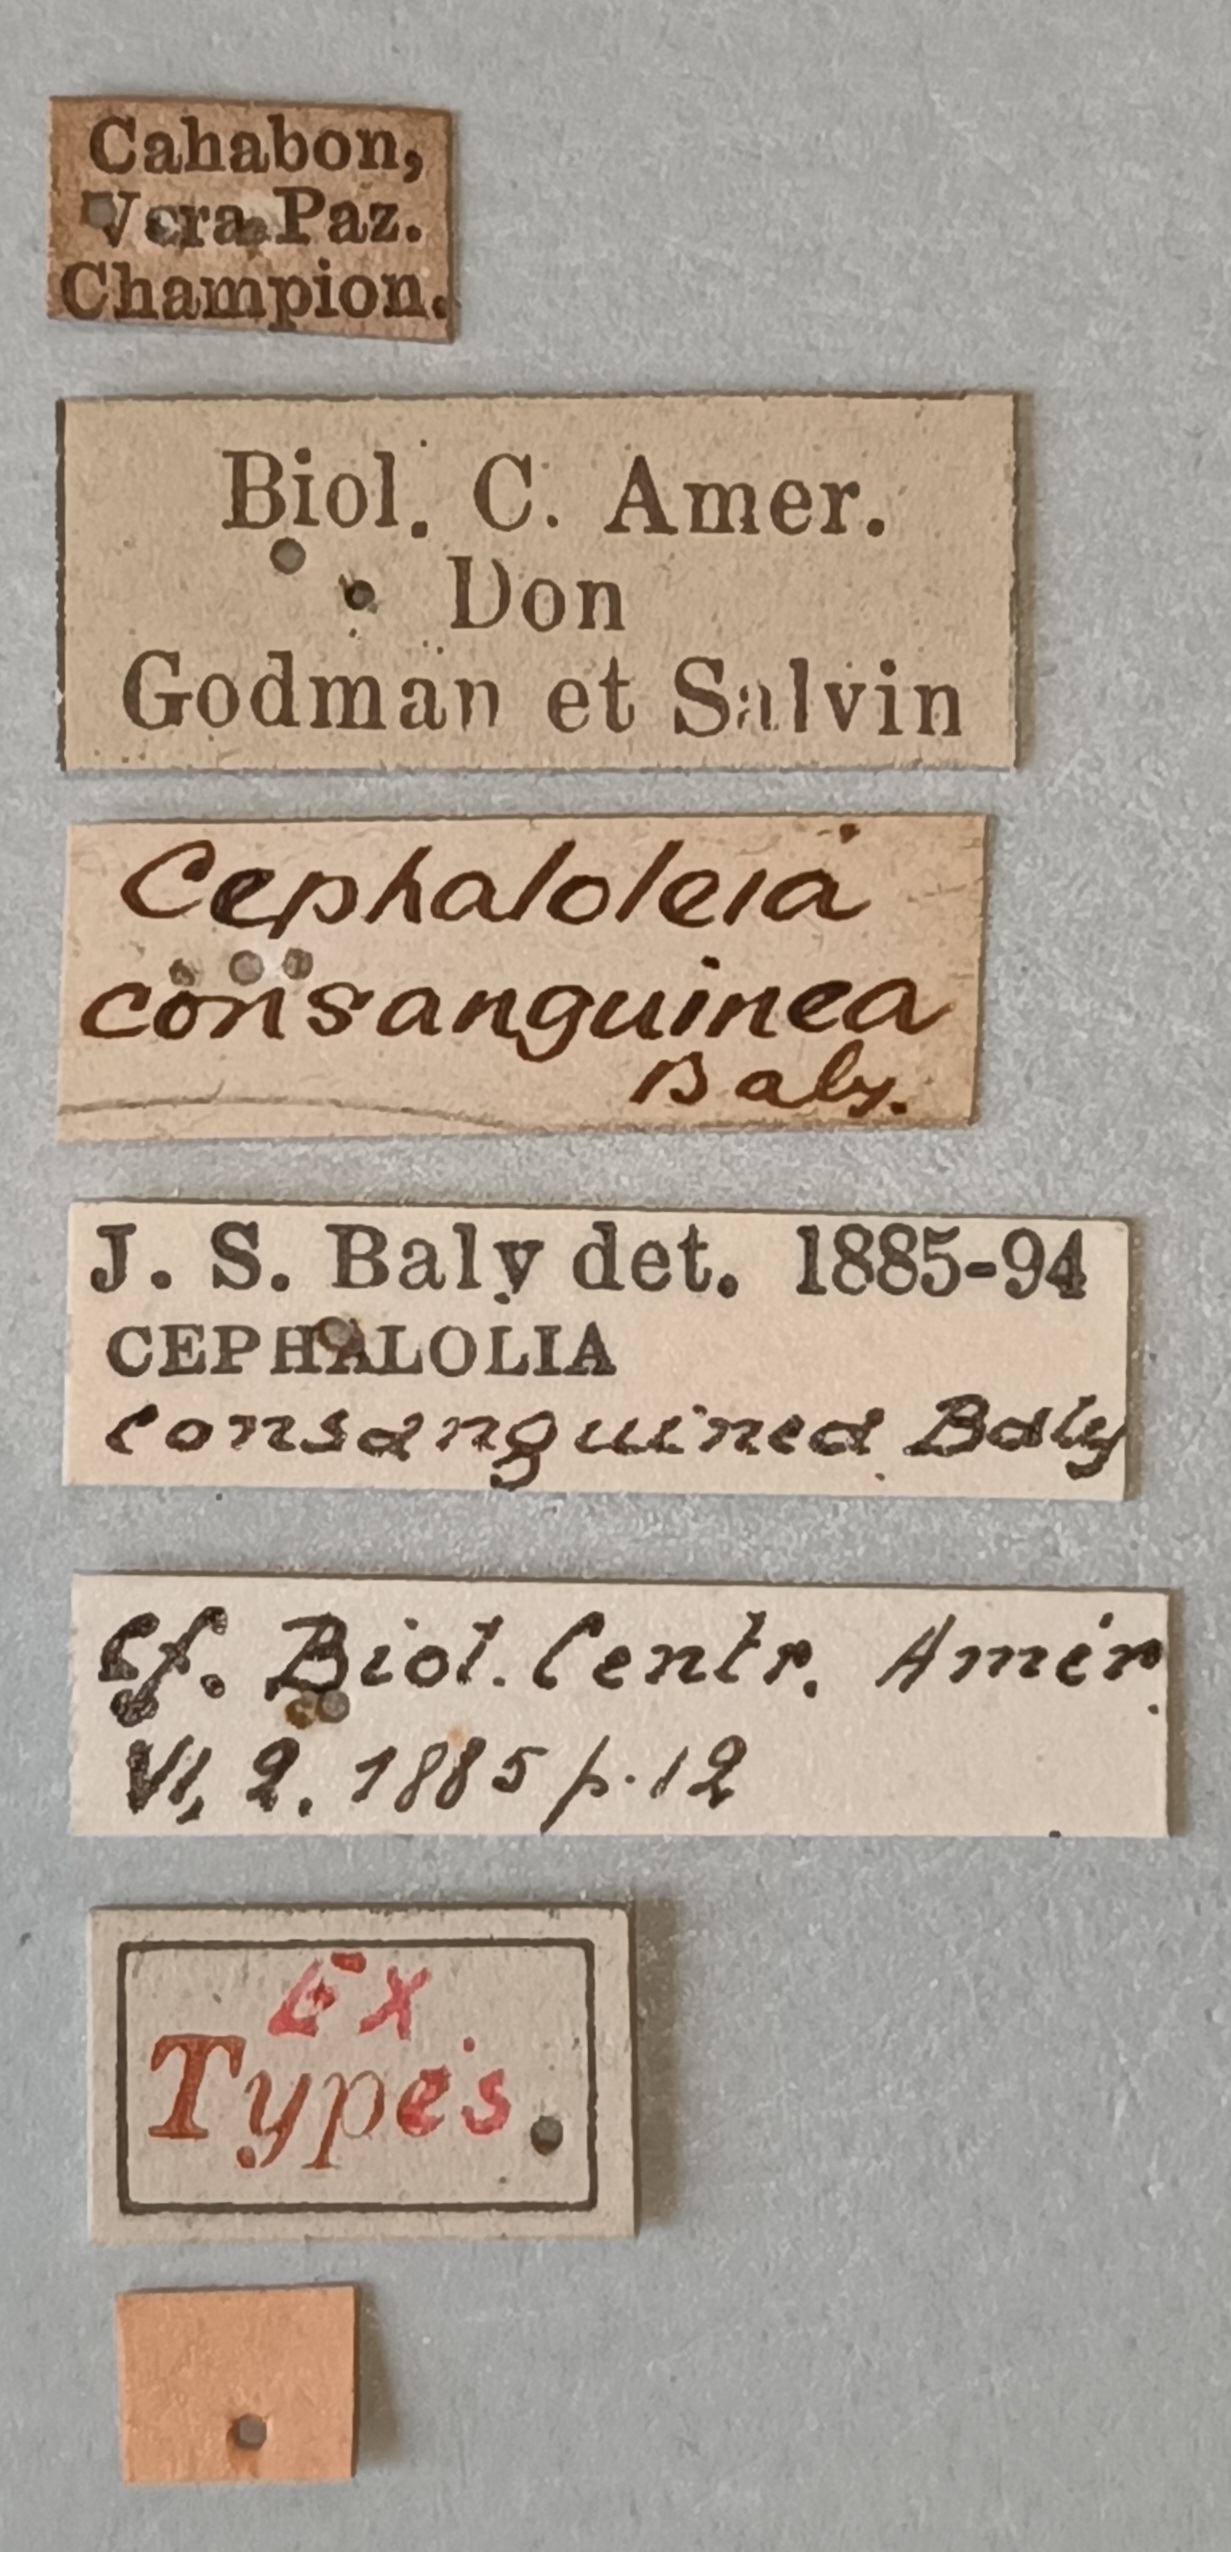 Cahabon,
Vera Paz.
Champion.
Biol. C. Amer.
Don
Godman et Salvin
Cephaloleia
consanguinea
Baly.
J. S. Baly det. 1885-94
CEPHALOLIA
consanguinea Baly
Cf. Biol. Centr. Amer.
VI, 2. 1885 p. 12
Ex
Types.